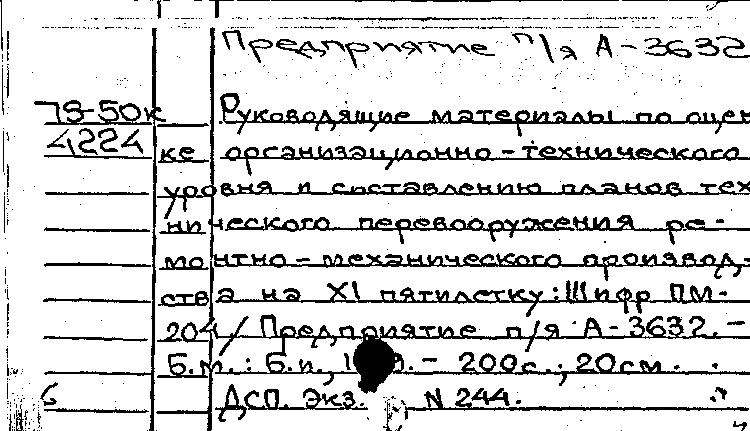 Предприятие п/я А-3632
78-50к Руководящие материалы по оцен
4224 ке организационно-технического
уровня и составлению планов тех
нического перевооружения ре-
монтно-механического производ-
ства на XI пятилетку: Шифр ПМ-
204/ Предприятие п/я А-3632.-
Б.м.: Б.и., - 200с.; 20см.
6 ДСП. Экз. N 244.